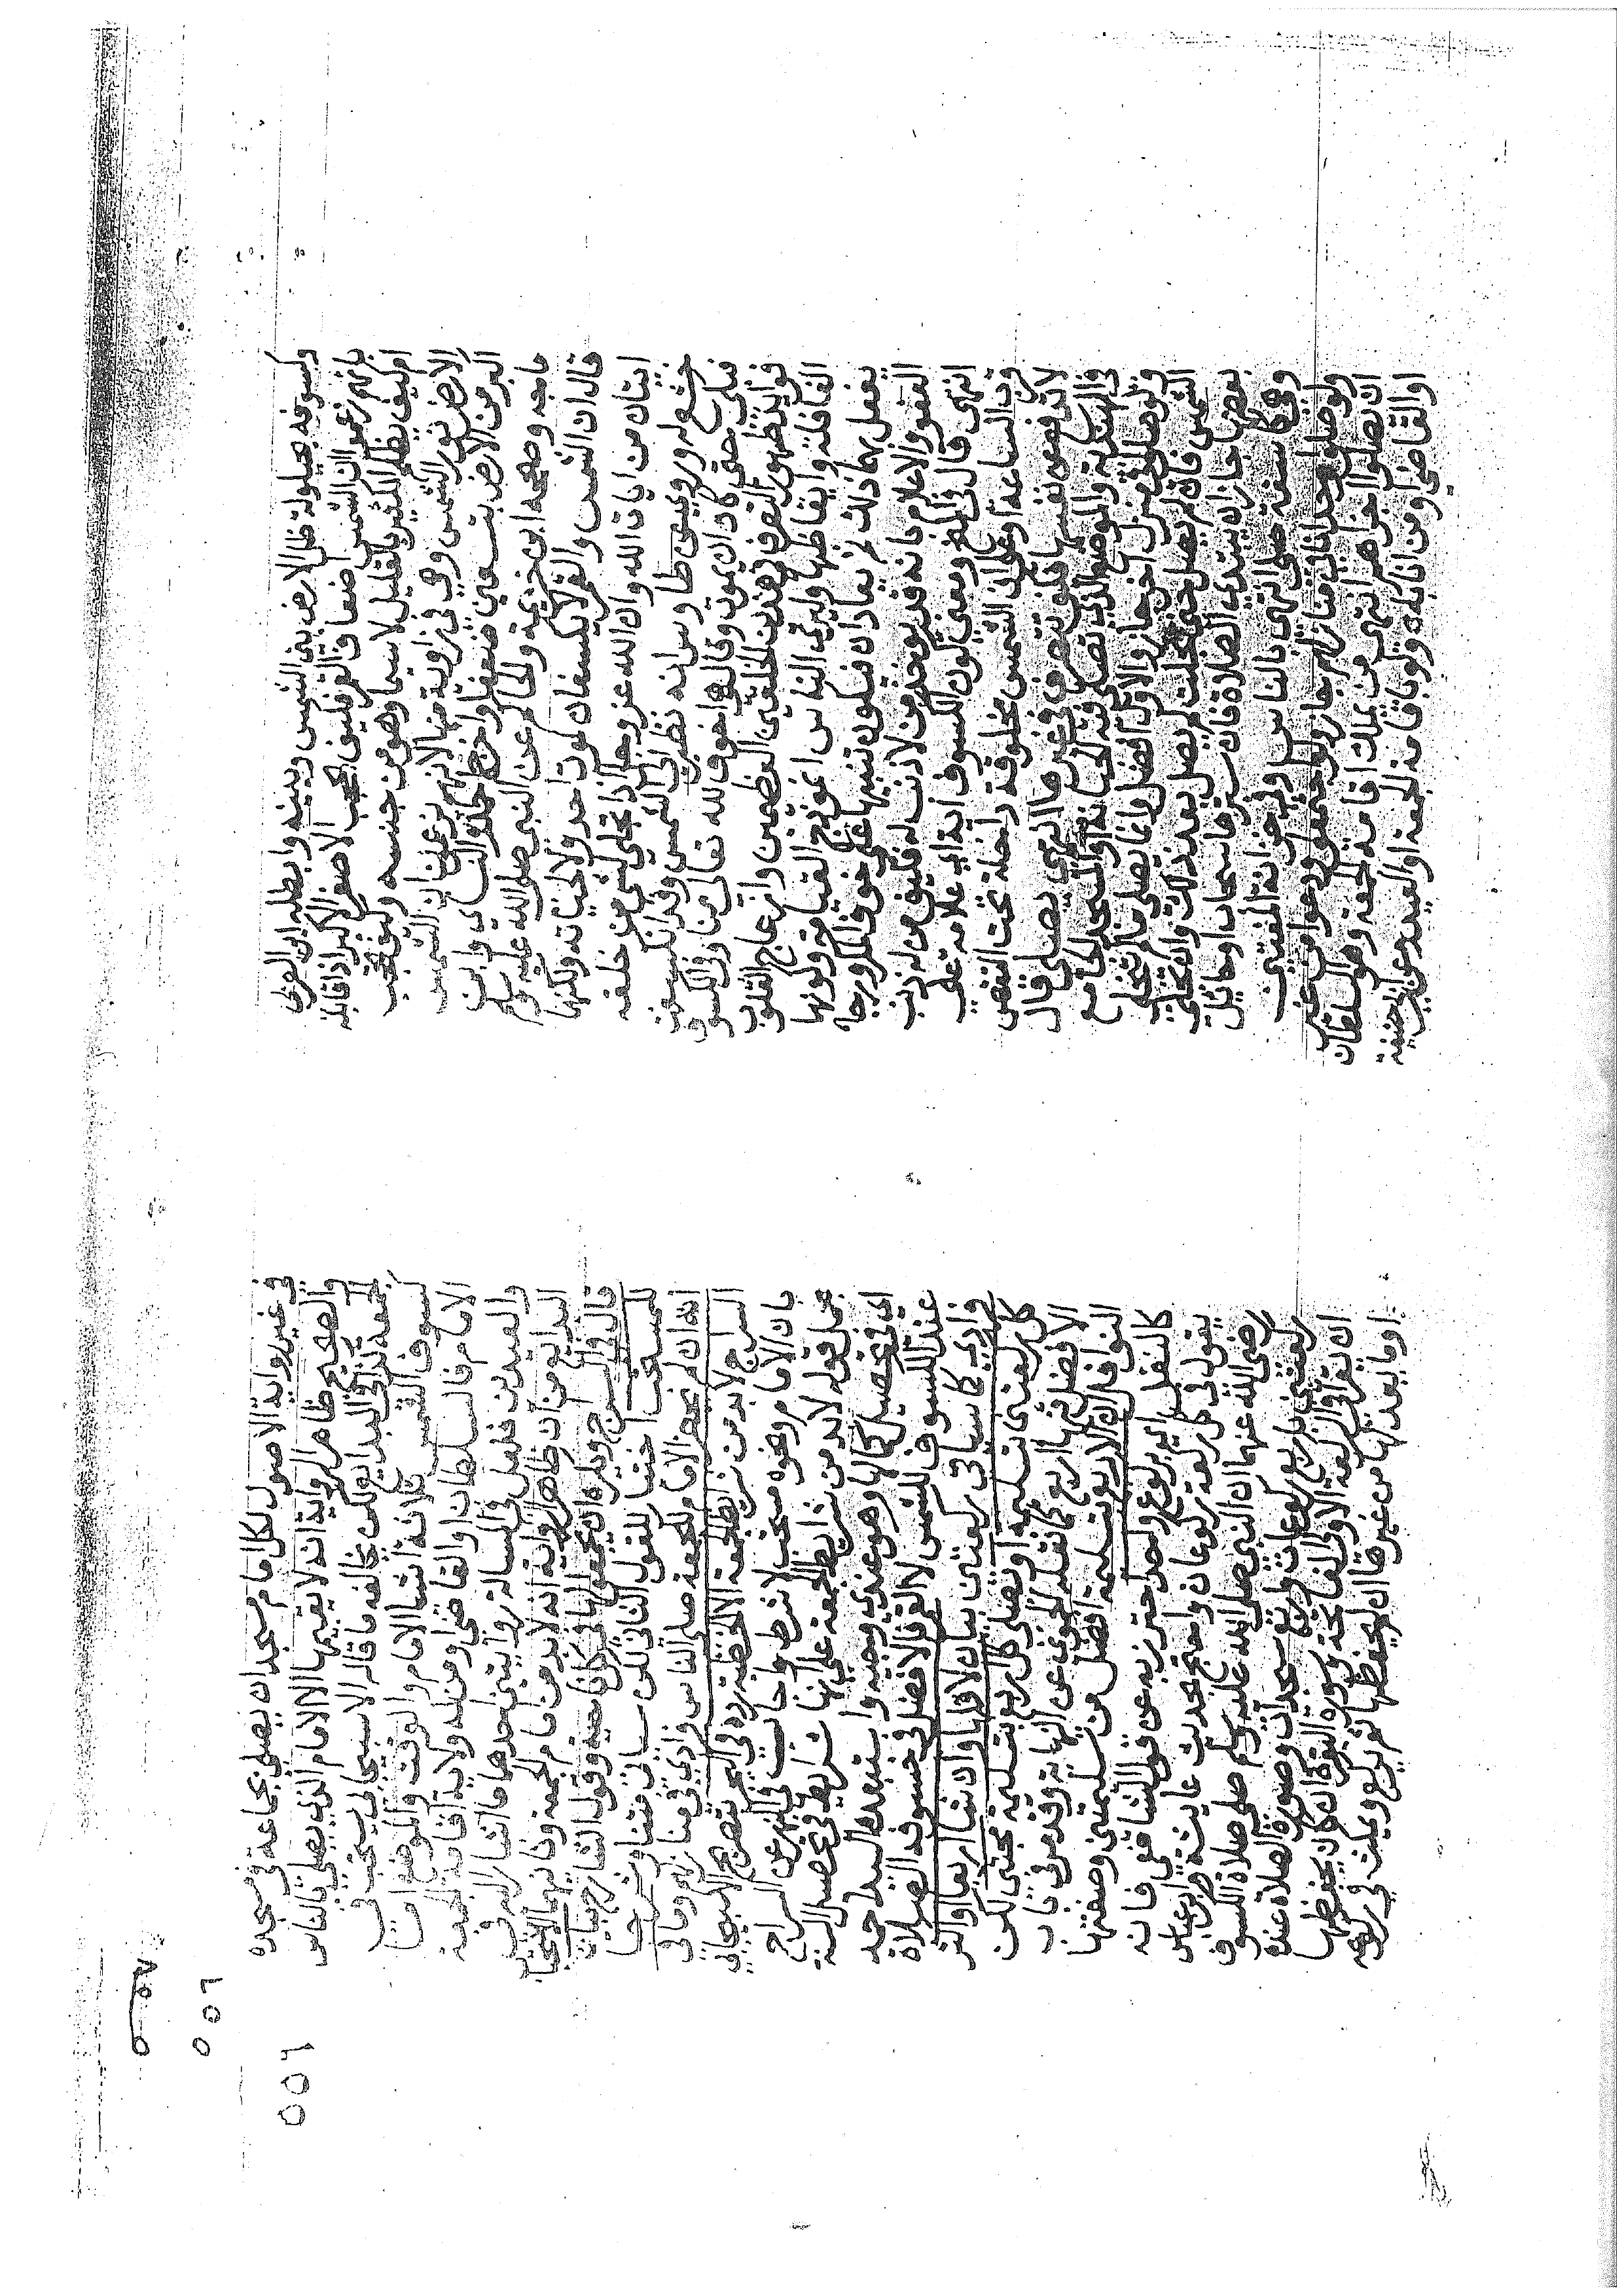 وكسوفه بحيلولة ظل الارض بين الشمس وبينه وابطله ابن العربي
بانهم زعموا ان الشمس اضعاف القمر فكيف يحجب الاصغر الاكبر اذا قابله
ام كيف يظلم الكثير بالقليل لا سيما وهو من جنسه وكيف تحجب
الارض نور الشمس وهي في زاوية منها لانهم يزعمون ان الشمس
اكبر من الارض بتسعين ضعفا واخرج احمد والنساي وابن
ماجه وصححه ابن خزيمة والحاكم عن النبي صلى الله عليه وسلم
قال ان الشمس والقمر لا يكسفان لموت احد ولا لحياته ولكنهما
ايتان من ايات الله وان الله عز وجل اذا تجلى لشي من خلقه
خشع له وروي عن طاوس انه نظر الى الشمس وقد انكسفت
فبكى حتى كاد ان يموت وقال هي اخوف لله تعالى منا وفي الكسوف
فوايد ظهور التصرف في هذين الخلقين العظيمين وازعاج القلوب
الغافلة وايقاظها وليرى الناس انموذج القيامة وكونهما
يفعل بهما ذلك ثم يعادان فيكون تنبيها على خوف المكر ورجا
العفو والاعلام بانه قد يوخذ من لا ذنب له فكيف من له ذنب
انتهى قال في المنح ومعنى كون الكسوف اية اي علامة على
قرب الساعة او على ان الشمس مخلوقة داخلة تحت النقص
لا تدفع عن نفسها فكيف تتصرف في غيرها انتهى يصلي قال
في السراجية والموضع الذي تصلى فيه الجبانة او المسجد الجامع
ولو صليت في منزل اخر جاز والاول افضل وانما يصلي ما لم تنجلي
الشمس فان لم يصل حتى انجلت لم يصل بعد ذلك وان تجلى
بعضها جاز ان يبتدي الصلاة فان سترها سحاب او حائل
وهي كاسفة صلى انتهى بالناس وفي خزانة المفتيين
ولو صلوا وحدانا في منازلهم جاز ولو اجتمعوا ودعوا من غير
ان يصلوا اجزاهم انتهى من يملك اقامة الجمعة وهو السلطان
او القاضي او من انابه ولو باقامة الجمعة او العيد وعن ابي حنيفة
٥٥٦
٥٥٦
في غير رواية الاصول لكل امام مسجد ان يصلي بجماعة في مسجده
والصحيح ظاهر الرواية انه لا يقيمها الا الامام الذي يصلي بالناس
الجمعة كذا في البدايع لكن يخالفه ما قاله الاسبيجابي يستحب في
كسوف الشمس ثلاثة اشيا الامام والوقت والموضع اما
الامام فالسلطان او القاضي ومن له ولاية اقامة الجمعة
والعيدين فلعل في المسالة روايتين احدهما ما اشار اليه في
البدايع من ان ظاهر الرواية انه لا بد من امام الجمعة وثانيهما الاستحباب
قال في السراج ويكره ان يجمع في كل ناحية وقول الشارح بيان
للمستحب اختيار للقول الثاني لكن سياتي متنا وشرحا
انه ان لم يحضر الامام للجمعة صلى الناس فرادى في منازلهم وما في
السراج لا بد من شرايط الجمعة الا الخطبة رده في البحر بتصريح الاسبيجابي
بان الامام ونحوه مستحب لا شرط واجاب في النهر عن السراج
بحمل قوله لا بد من شرايط الجمعة على انها شرايط في تحصيل السنة
اي في تحصيل كمالها وهو عندي وجيه واستبعده السيد احمد
عند الكسوف للشمس لا القمر اذ الافضل في خسوفه الصلاة
فرادى كما سياتي ركعتين بيان لاقلها وان شا اربعا او اكثر
كل ركعتين بتسليمة او يصلي كل اربع بتسليمة مجتبى لكن
الافضل فيها اربع كما نقله الحموي عن النهاية وقد مر في باب
النوافل ان الاربع بتسليمة افضل من تسليمتين وصفتها
كالنفل اي بركوع واحد احترز به عن قول الشافعي فانه
يقول في كل ركعة ركوعان واحتج بحديث عايشة وابن عباس
رضي الله عنهما ان النبي صلى الله عليه وسلم صلى صلاة الكسوف
ركعتين باربع ركوعات واربع سجدات وصورة الصلاة عنده
ان يقرا في الركعة الاولى الفاتحة وسورة البقرة ان كان يحفظها
او ما يعدلها من غيرها ان لم يحفظها ثم يركع ويمكث في ركوعه